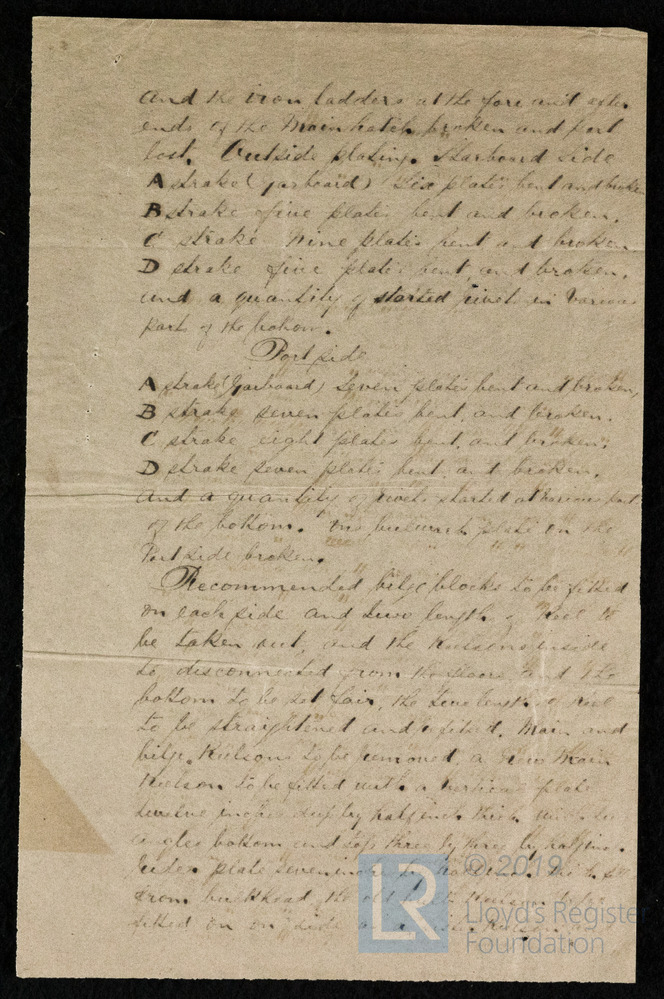 and the iron ladders at the fore and after
ends of the Main hatch broken and part
lost. Outside plating. Starboard side
A strake (garboard) Six plates bent and broken
B strake five plates bent and broken.
C strake Nine plates bent and broken
D strake five plates bent and broken.
and a quantity of started rivets in Various
parts of the bottom.
Port side
A strake (garboard) Seven plates bent and broken,
B strake seven plates bent and broken.
C strake eight plates bent and broken.
D strake seven plates bent and broken.
and a quantity of rivets started at various part
of the bottom. bulwark plate on the
Port side broken.
Recommended bilge blocks to be fitted
on each side and two length of Keel to
be taken out, and the Keelsons inside
to disconnected from the floors and the
bottom to be set fair, the two length of Keel
to be straightened and refitted. Main and
bilge Keelsons to be removed, a New Main
Keelson to be fitted with a vertical plate
twelve inches deep by half inch thick with
angles bottom and top three by three by half in.
plate seven inches by half
from bulkhead the old Keelson
fitted on side
LR
© 2019
Lloyd's Register
Foundation